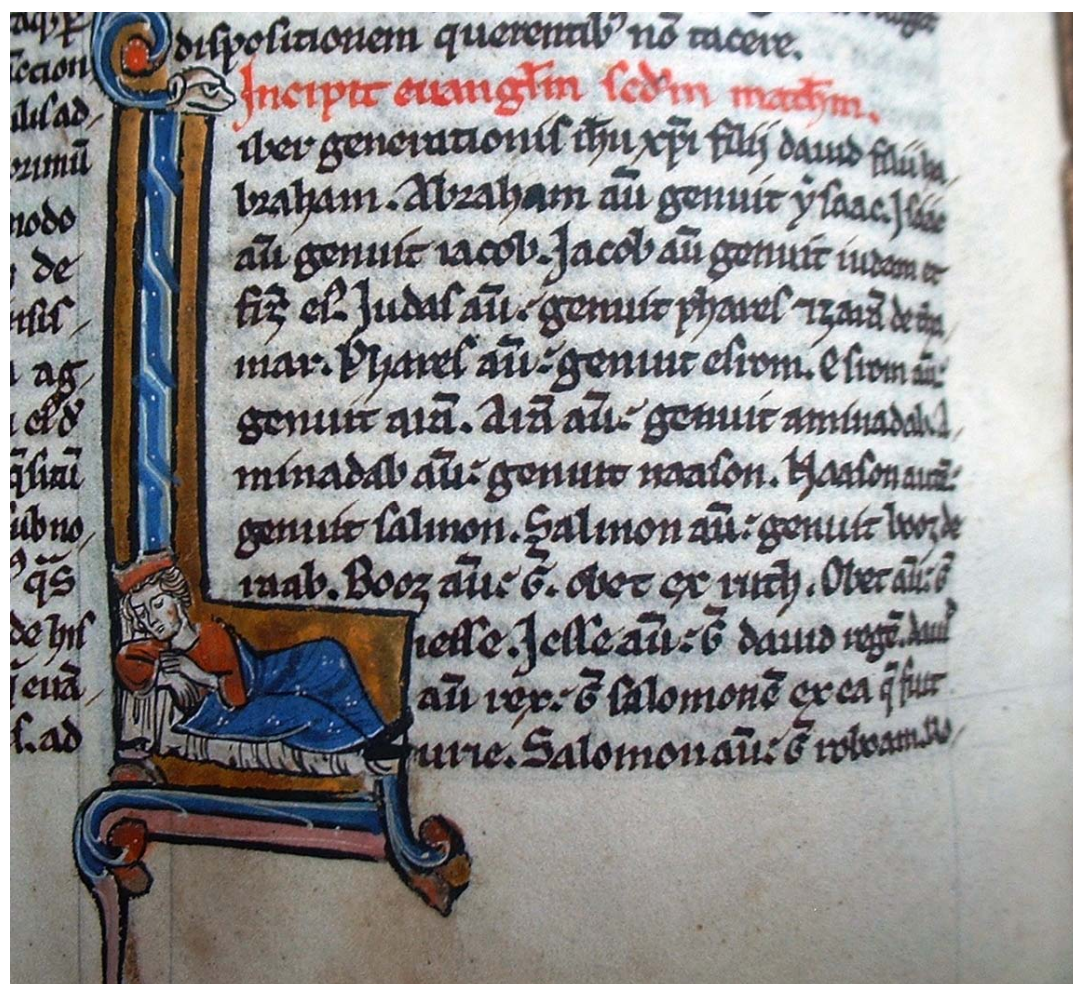 ilis ad
rimū
modo
de
nsis
ag
q̄situ
ub no
q̄s
de his
euā
s. ad
dispositionem querentib᾽ nō tacere.
Incipit euangłm scd̄m mathm̄.
iber generationis ih̄u xp̄i filij dauid filii ha
braham. Abraham aū genuit ẏsaac. Isaac
aū genuit iacob. Jacob aū genuit iudam et
fr̄s ei᾽. Judas aū genuit phares ⁊ zarā de tha
mar. Phares aū genuit esrom. Esrom aū
genuit arā. Arā aū genuit aminadab. A
minadab aū genuit naason. Naason autē
genuit salmon. Salmon aū genuit booz de
raab. Booz aū ḡ. obet ex ruth. Obet aū ḡ
iesse. Jesse aū ḡ dauid regē. dauid
aū rex ḡ salomonē ex ea q̄ fuit
urie. Salomon aū ḡ roboam. Ro